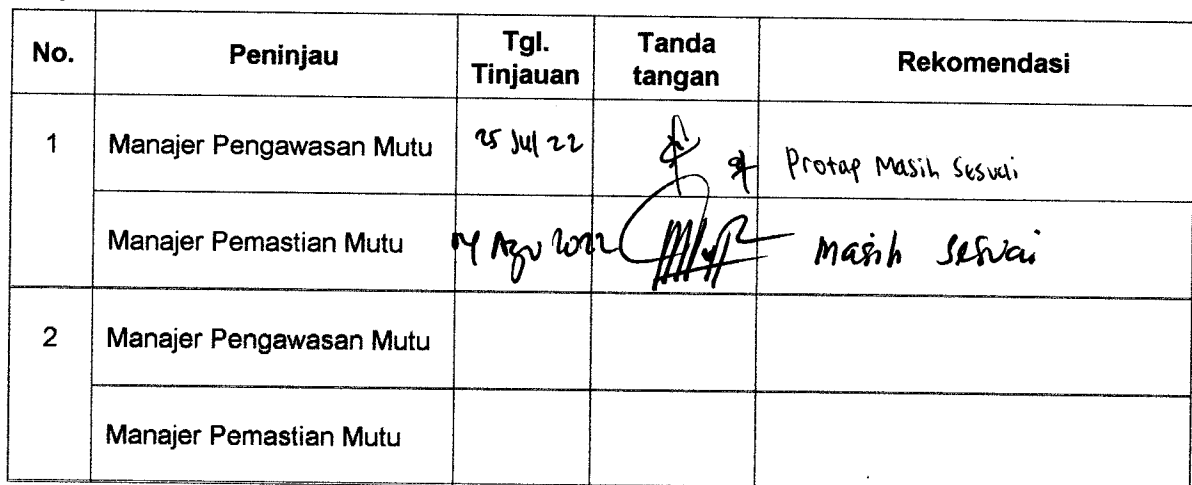 No. Peninjau Tgl. Tinjauan Tanda tangan Rekomendasi
1 Manajer Pengawasan Mutu 25 Jul 22 Protap Masih Sesuai
Manajer Pemastian Mutu 04 Agu 2022 Masih Sesuai
2 Manajer Pengawasan Mutu
Manajer Pemastian Mutu